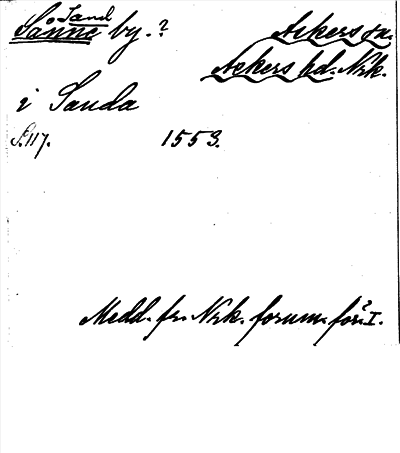 Sand
Sånne by.?
Askers sn.
Askers hd. Nrk.
i Sanda
S. 117. 1553.
Medd. fr. Nrk. fornm. för. I.